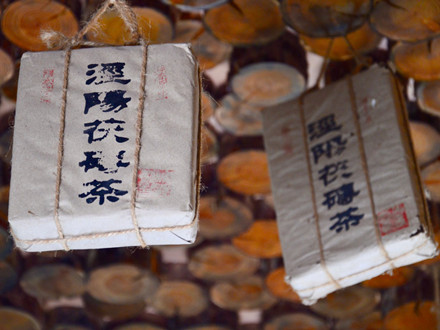 涇陽茯磚茶
涇陽茯磚茶